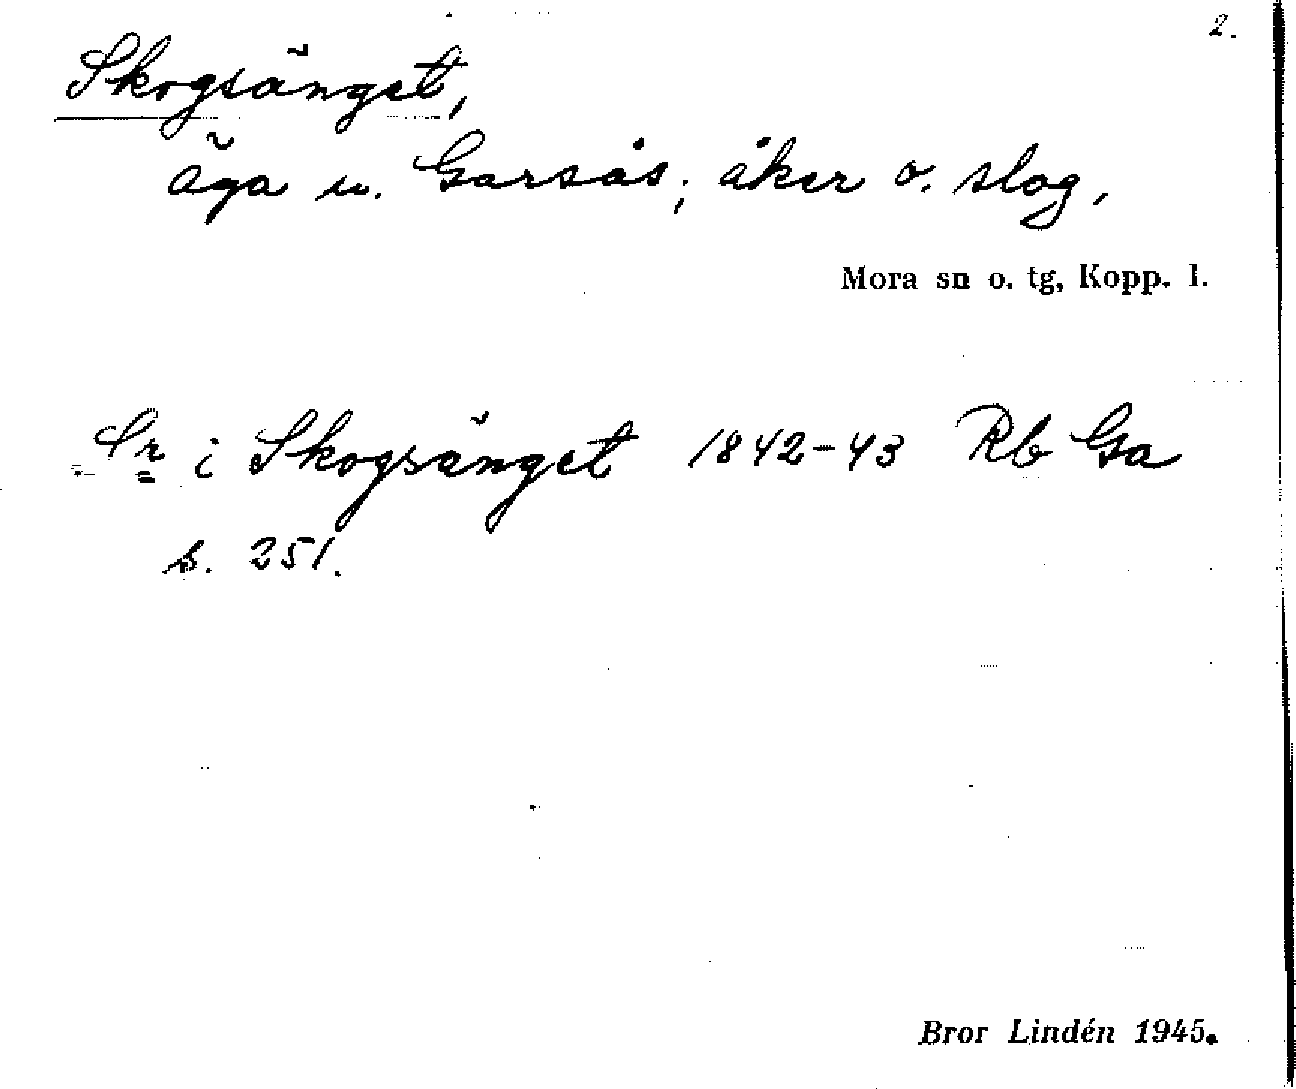 2.
Skogsänget,
äga u. Garsås; åker o. slog.
Mora sn o. tg, Kopp. l.
i Skogsänget 1842-43 Rb Ga
s. 251.
Bror Lindén 1945.